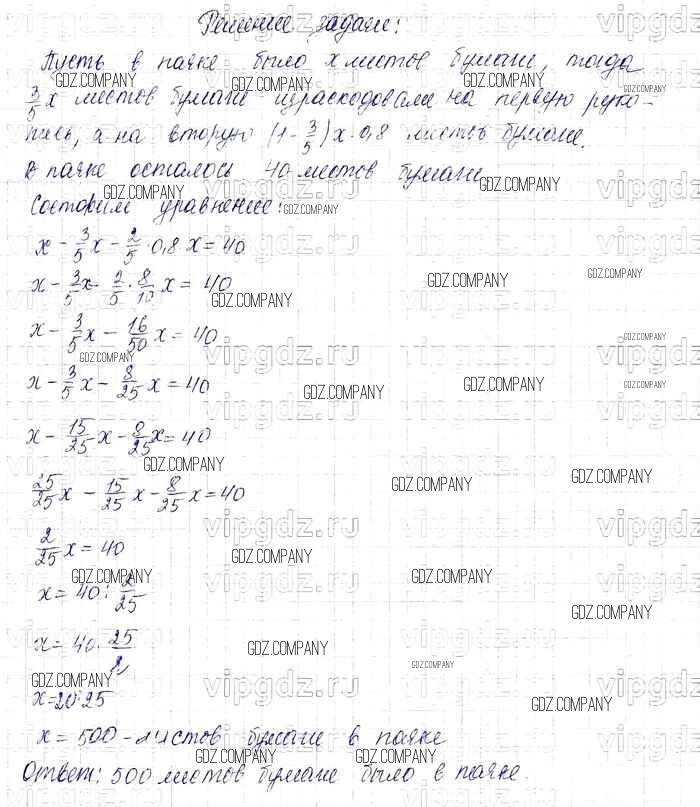 Решение задачи:
Пусть в пачке было x листов бумаги, тогда
3/5 x листов бумаги израсходовали на первую руко-
пись, а на вторую (1 - 3/5) x · 0,8 листов бумаги.
В пачке осталось 40 листов бумаги.
Составим уравнение:
x - 3/5 x - 2/5 · 0,8 x = 40
x - 3/5 x - 2/5 · 8/10 x = 40
x - 3/5 x - 16/50 x = 40
x - 3/5 x - 8/25 x = 40
x - 15/25 x - 8/25 x = 40
25/25 x - 15/25 x - 8/25 x = 40
2/25 x = 40
x = 40 : 2/25
x = 40 · 25/2
x = 20 · 25
x = 500 - листов бумаги в пачке
Ответ: 500 листов бумаги было в пачке.
vipgdz.ru
GDZ.COMPANY